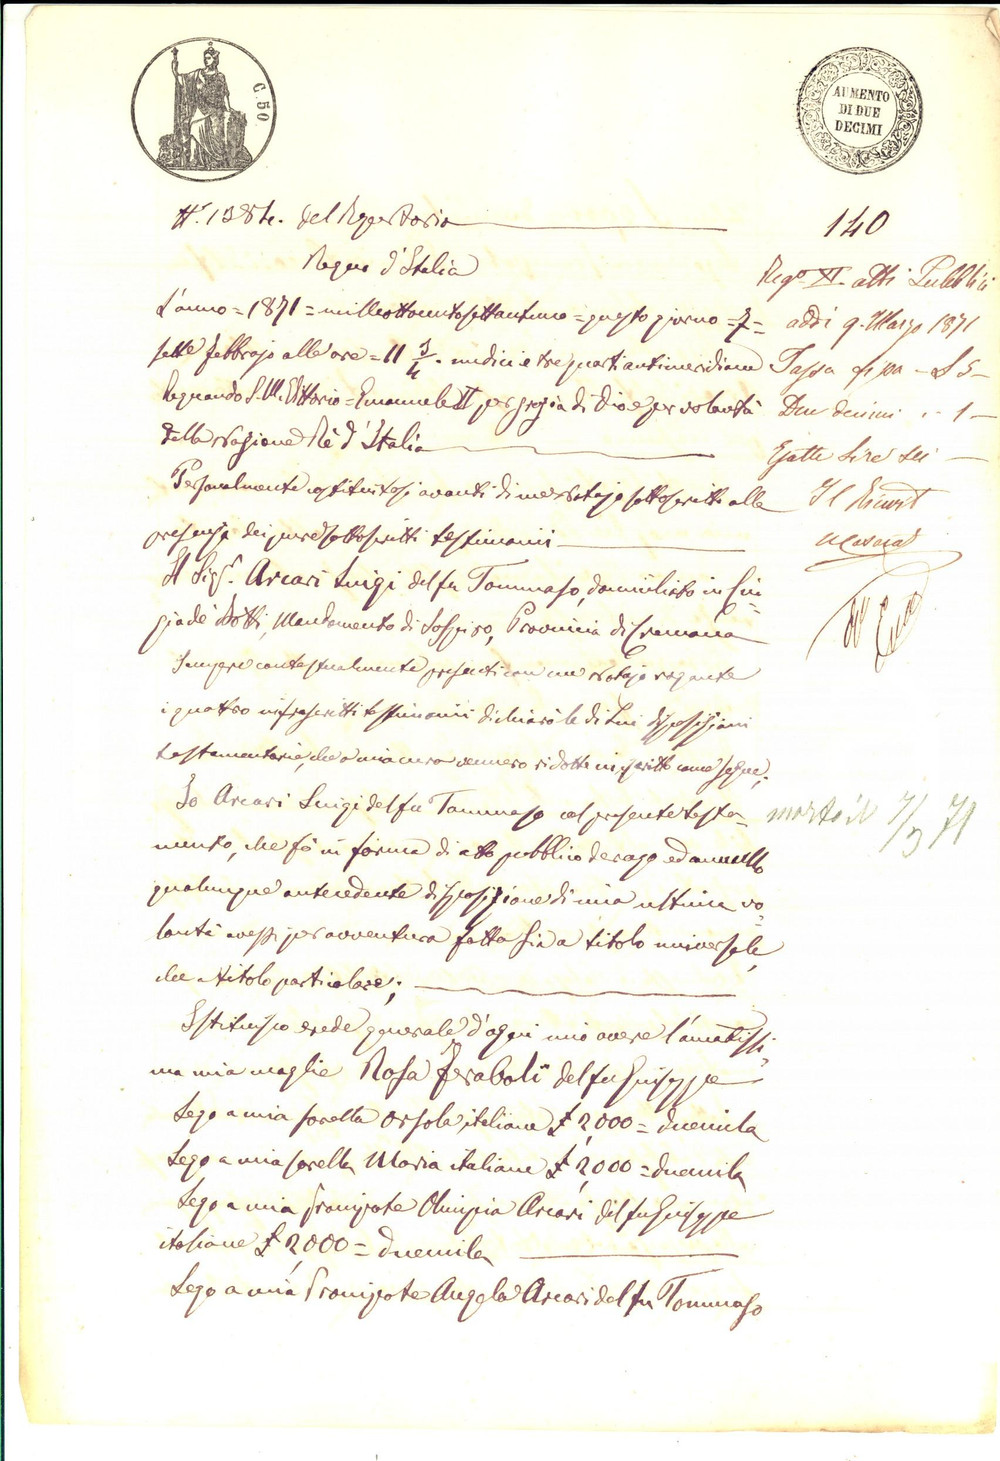 C. 50.
AUMENTO
DI DUE
DECIMI
N.° 1384. del Repertorio
140
Regno d'Italia
L'anno = 1871 = milleottocentosettantuno = questo giorno = 7 =
sette febbrajo alle ore = 11 3/4 - undici e tre quarti antimeridiane
Regnando S. M. Vittorio = Emanuele II per grazia di Dio e per volontà
della Nazione Rè d'Italia
Personalmente costituitosi avanti di me Notajo sottoscritto alla
presenza dei pure sottoscritti testimonii
Il Sig.r Arcari Luigi del fu Tommaso, domiciliato in Cin-
gia de' Botti, Mandamento di Sospiro, Provincia di Cremona
Sempre contestualmente presenti con me Notajo rogante
i quattro infrascritti testimonii dichiarò le di Lui disposizioni
testamentarie, che a mia cura vennero ridotte in iscritto come segue;
Io Arcari Luigi del fu Tommaso col presente testa-
mento, che fò in forma di atto pubblico derogo ed annullo
qualunque antecedente disposizione di mia ultima vo-
lontà avessi per avventura fatta sia a titolo universale,
che a titolo particolare;
Istituisco erede generale d'ogni mio avere l'amatissi-
ma mia moglie Rosa Feraboli del fu Giuseppe
Lego a mia sorella Orsola, italiane £ 2,000 = duemila
Lego a mia sorella Maria italiane £ 2,000 = duemila
Lego a mia Pronipote Olimpia Arcari del fu Giuseppe
italiane £ 2,000 = duemila
Lego a mia Pronipote Angela Arcari del fu Tommaso
Reg.o XI. atti Pubblici
addì 9. Marzo 1871
Tassa fissa - L 5 -
Due decimi " - 1 -
Esatte Lire sei -
Il Ricevit
morto il 7/3 71